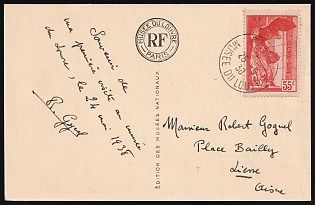 Souvenir de
ma première visite au musée
du Louvre, le 24 mai 1938
R. Goguel
MUSÉE DU LOUVRE
RF
PARIS
ÉDITION DES MUSÉES NATIONAUX
MUSÉE DU LOUVRE
55c
Monsieur Robert Goguel
Place Bailly
Liesse
Aisne